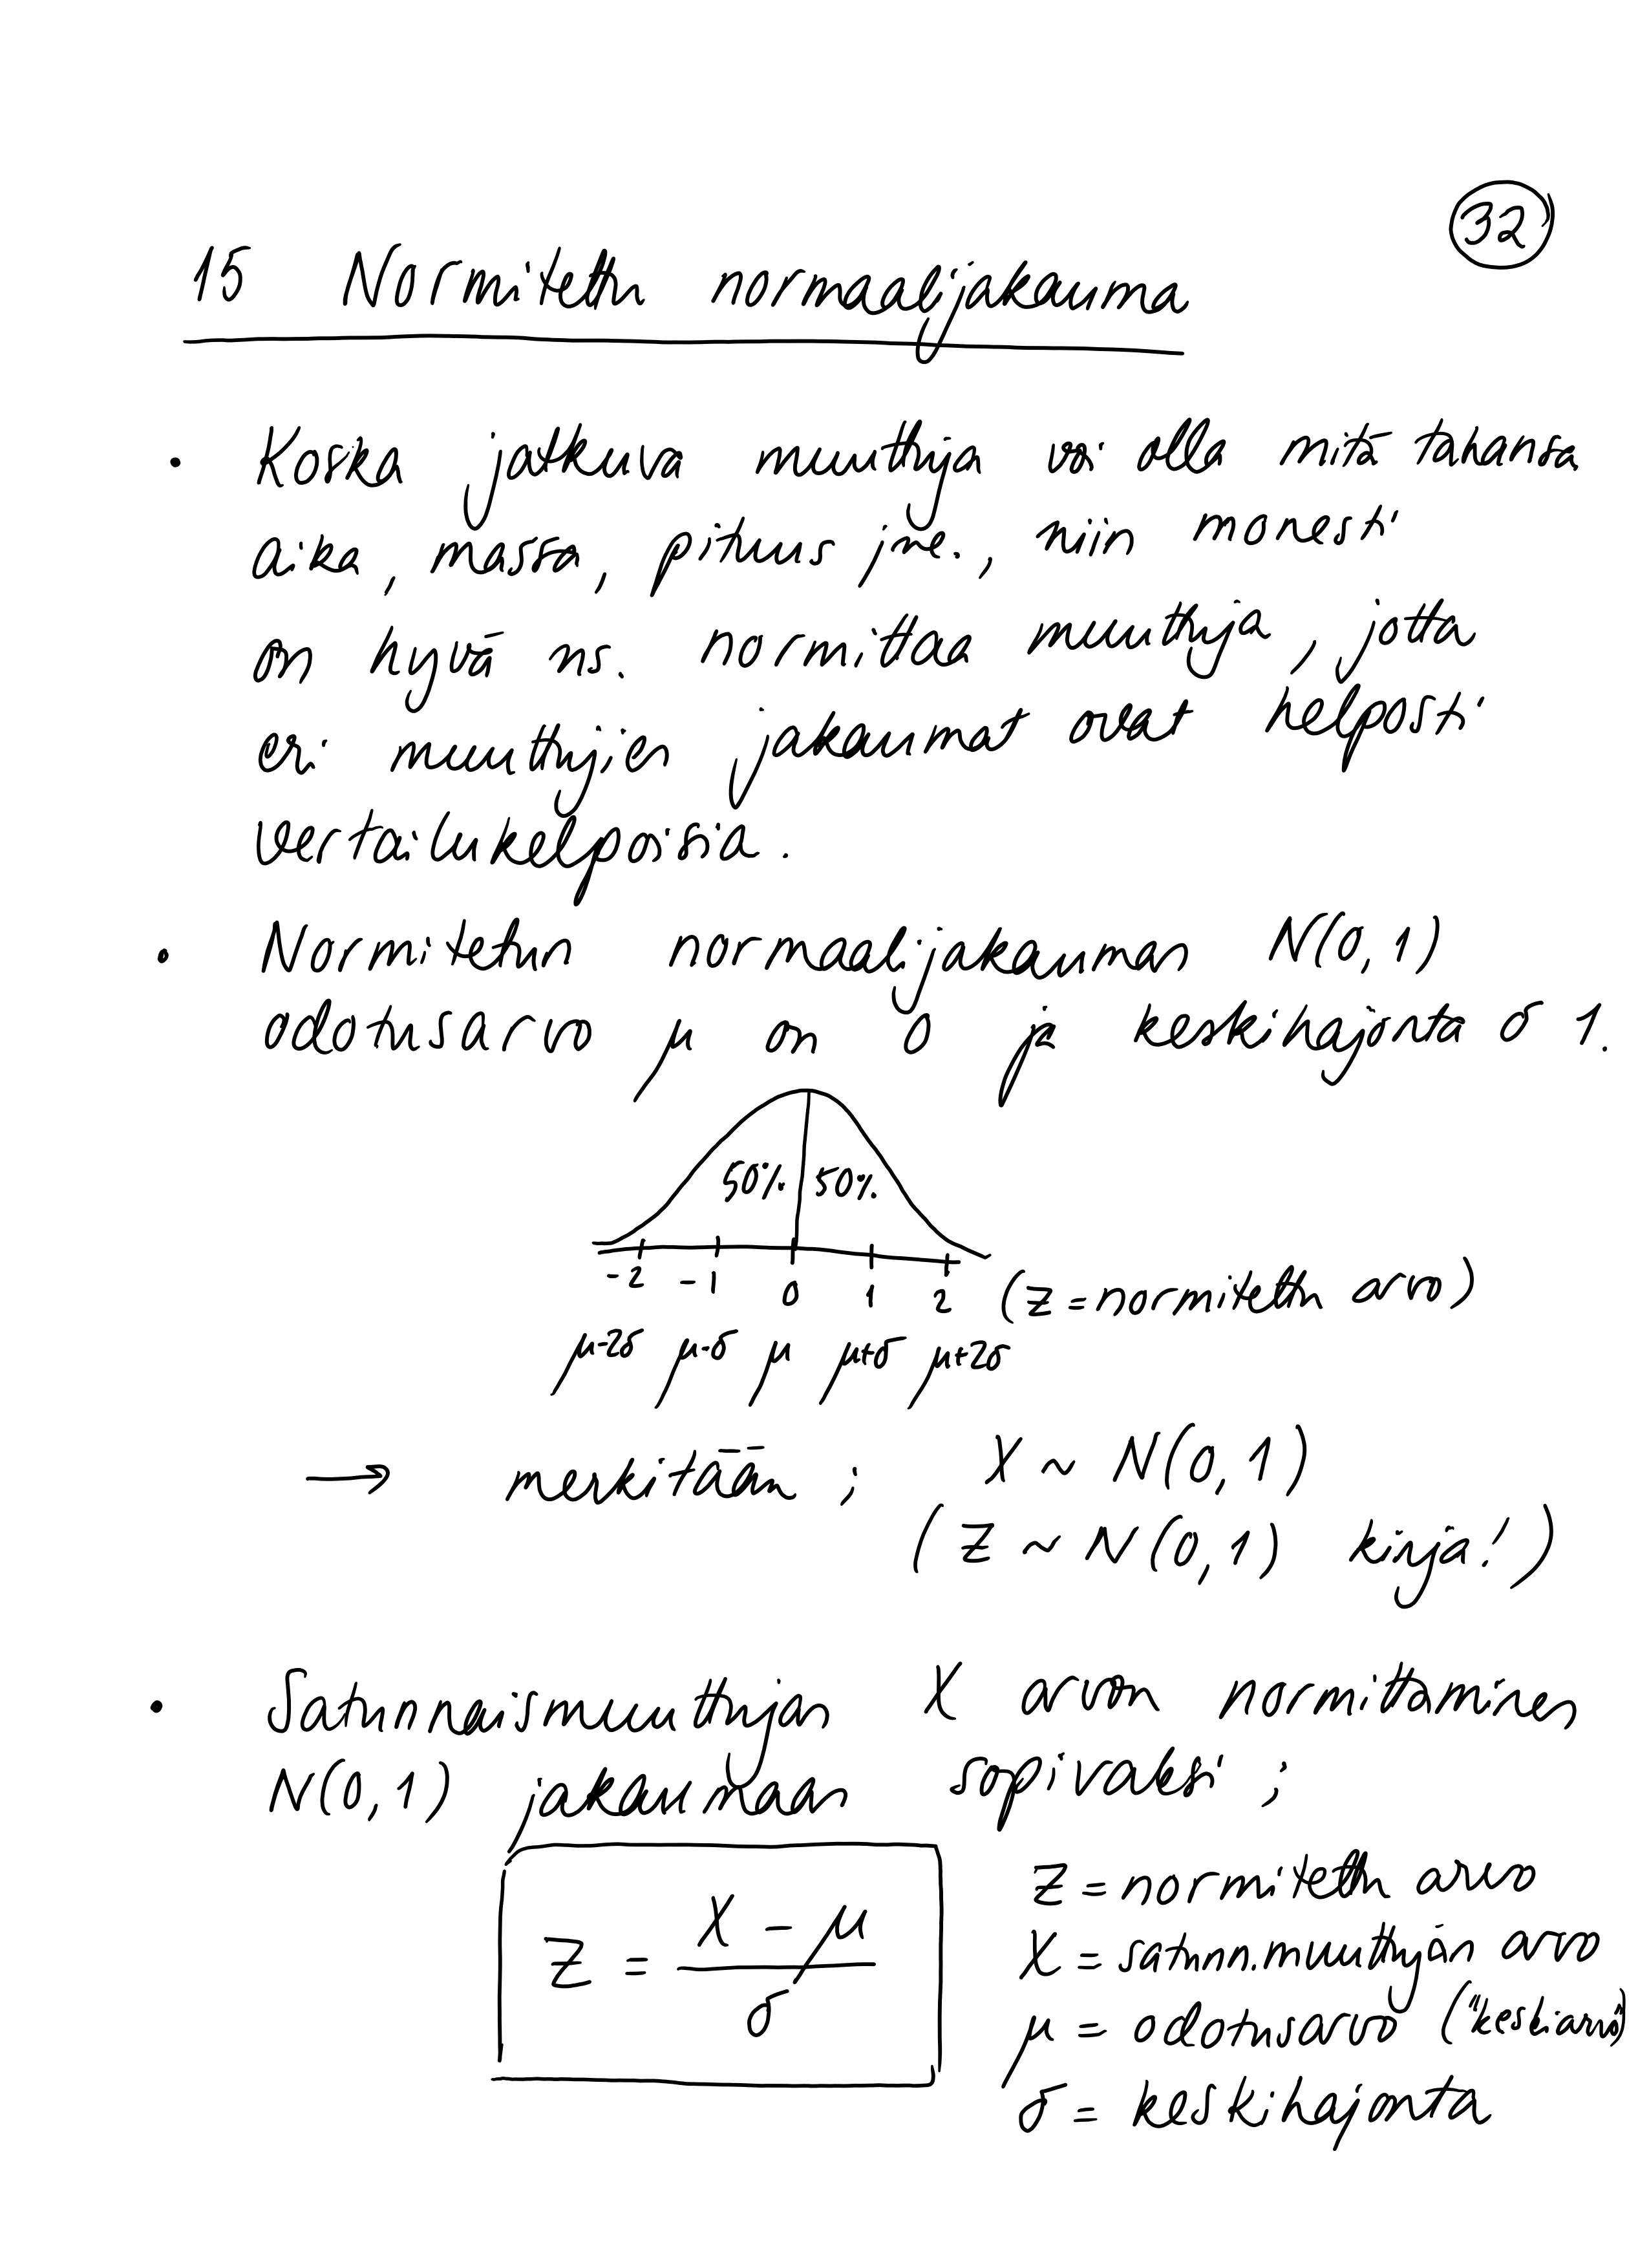 32
15 Normitettu normaalijakauma
• Koska jatkuva muuttuja voi olla mitä tahansa
aika, massa, pituus jne., niin monesti
on hyvä ns. normittaa muuttuja, jotta
eri muuttujien jakaumat ovat helposti
vertailukelpoisia.
• Normitetun normaalijakauman N(0,1)
odotusarvo μ on 0 ja keskihajonta σ 1.
50% 50%
-2 -1 0 1 2 (Z = normitettu arvo)
μ-2σ μ-σ μ μ+σ μ+2σ
→ merkitään ; X ~ N(0,1)
(Z ~ N(0,1) kirja!)
• Satunnaismuuttujan X arvon normittaminen
N(0,1) jakaumaan sopivaksi ;
Z = (X - μ) / σ
Z = normitettu arvo
X = satunn.muuttujan arvo
μ = odotusarvo ("keskiarvo")
σ = keskihajonta